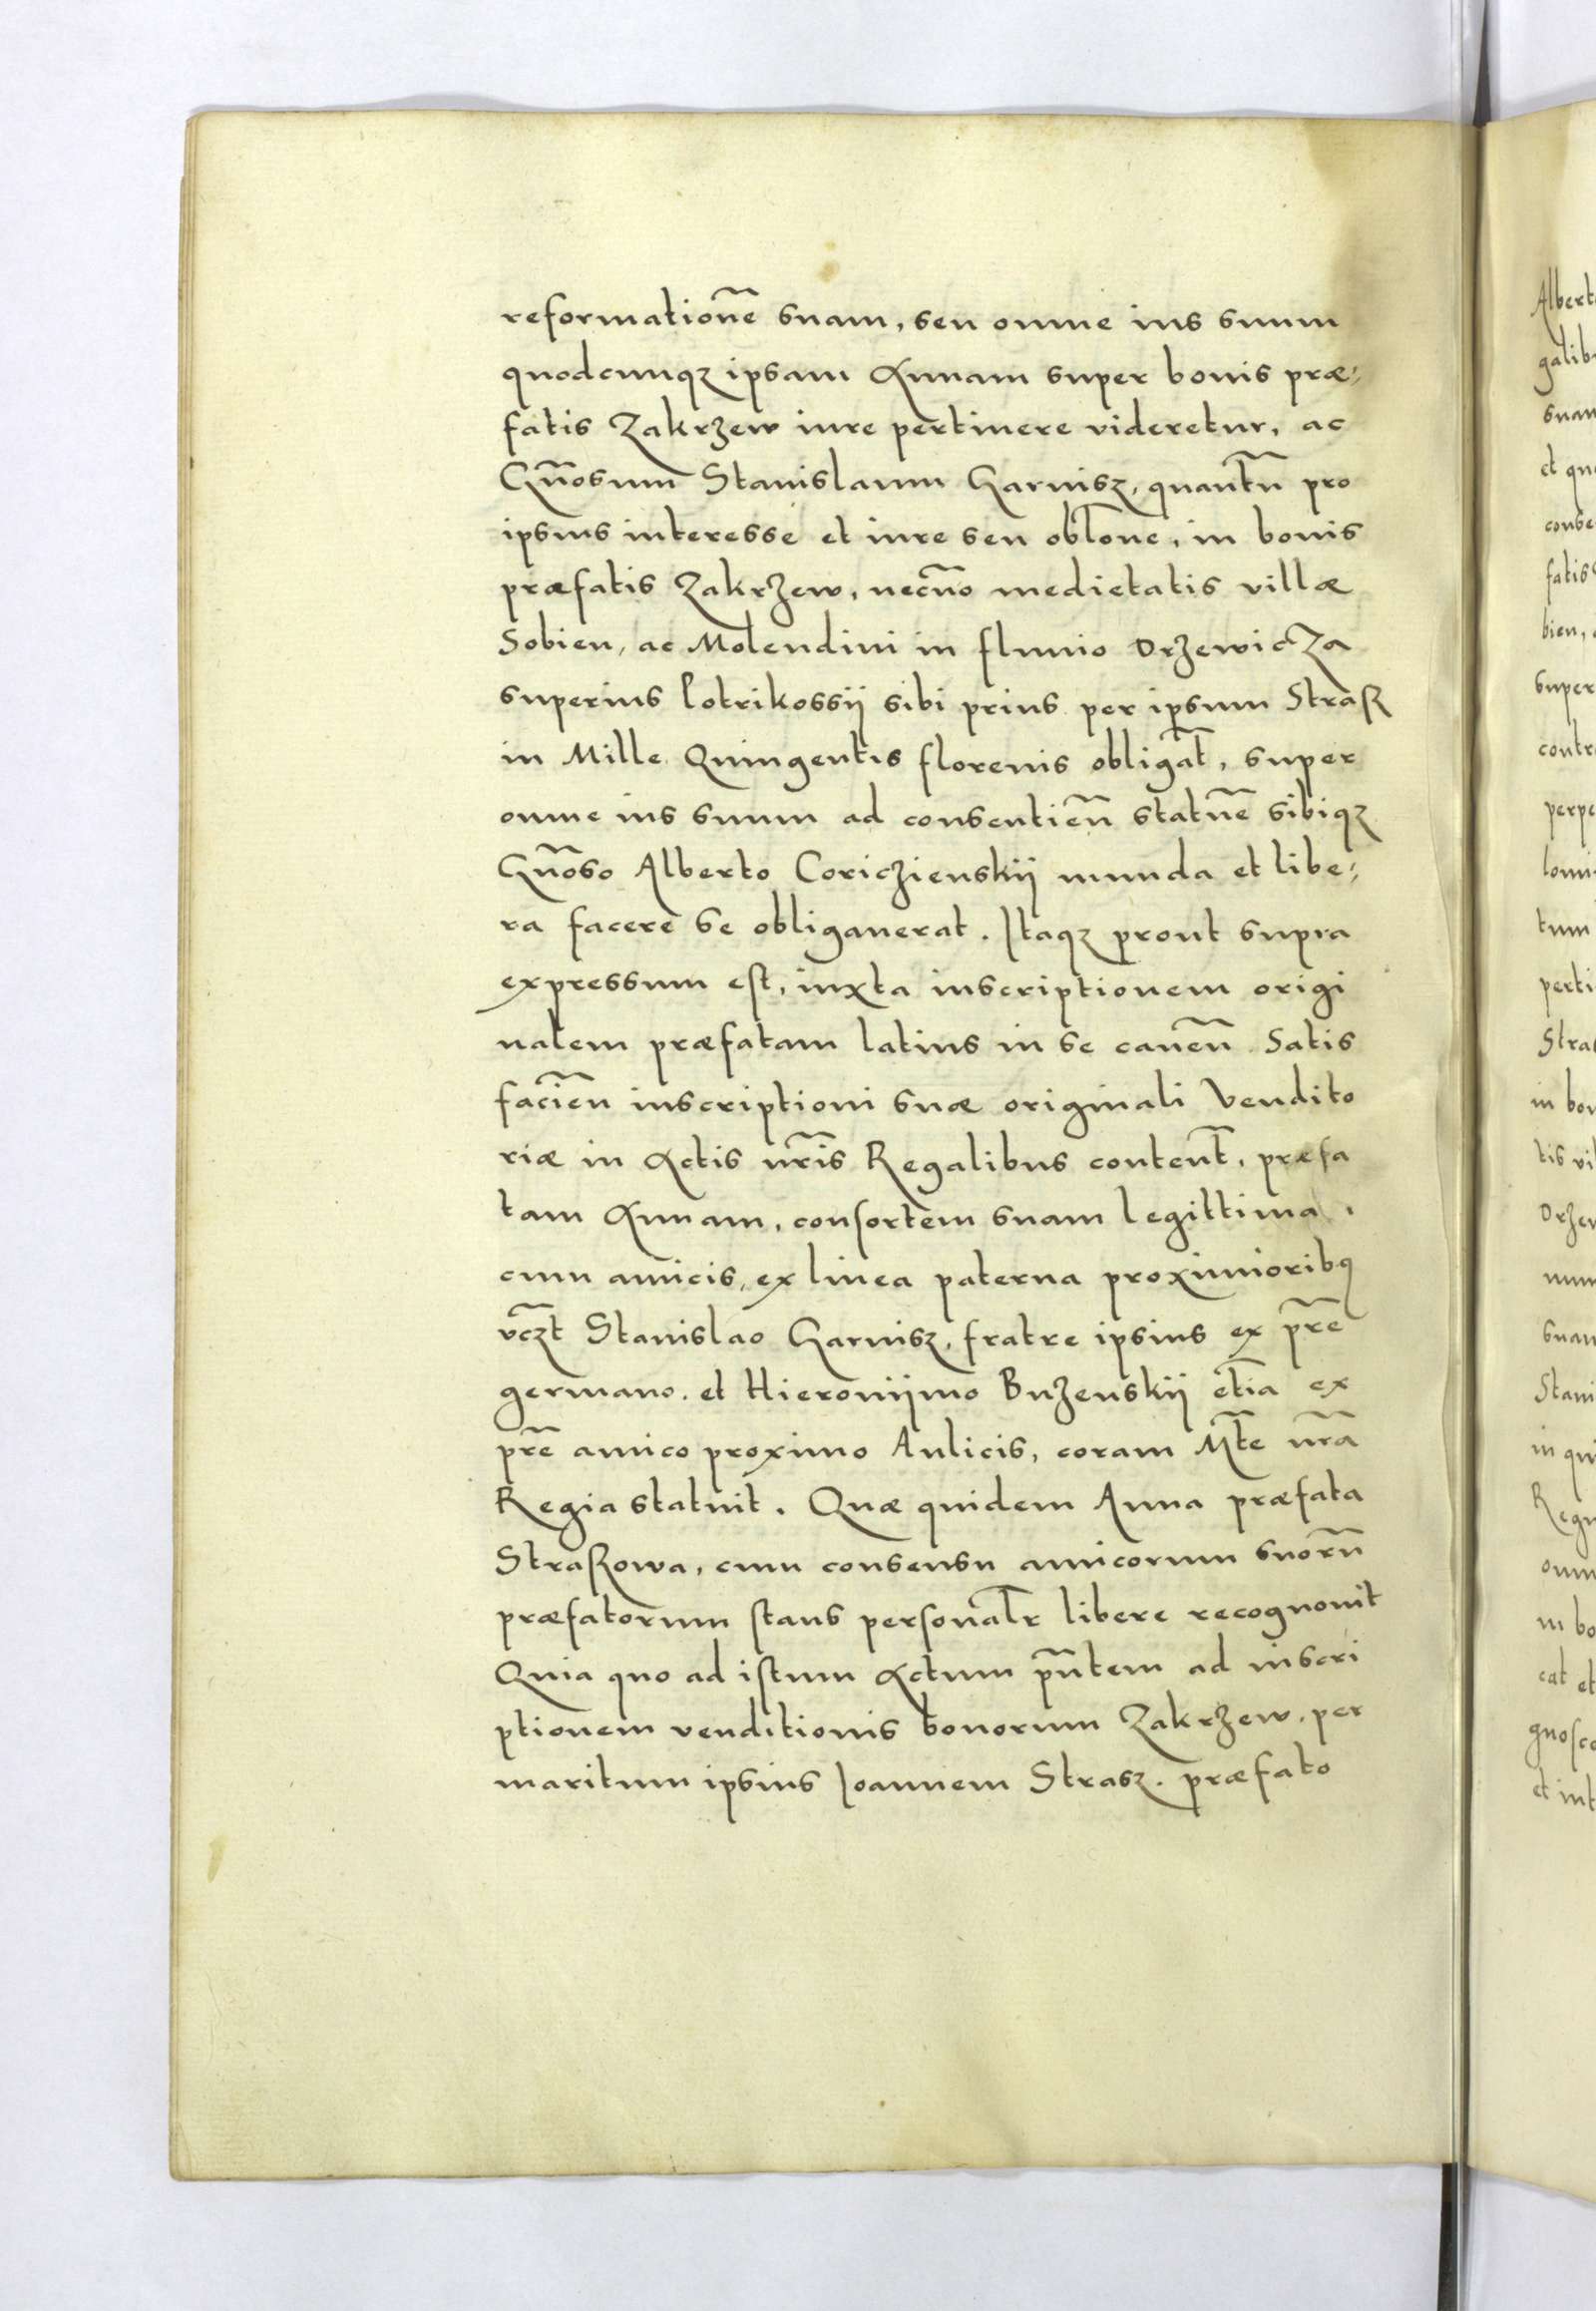 reformationẽ suam, seu omne ius suum
quodcunqꝫ ipsam Annam super bonis præ⸗
fatis Zakrzew iure pertinere videretur, ac
Gñosum Stanislaum Garnisz, quantũ pro
ipsius interesse et iure seu obl̃one, in bonis
præfatis Zakrzew, necño medietatis villæ
Sobien, ac Molendini in fluuio Drzewicza
superius Lotrikossij sibi prius per ipsum Straß
in Mille Quingentis florenis obligat̃, super
omne ius suum ad consentieñ statuẽ sibiqꝫ
Gñoso Alberto Coriczienskij munda et libe⸗
ra facere se obligauerat. Itaqꝫ prout supra
expressum est, iuxta inscriptionem origi
nalem præfatam latius in se caueñ. Satis
facieñ inscriptioni suæ originali Vendito
riæ in Actis nr̃is Regalibus content̃, præfa
tam Annam, consortem suam legittima,
cum amicis, ex linea paterna proximioribꝰ
vczt̃ Stanislao Garnisz, fratre ipsius ex pr̃e
germano. et Hieronijmo Buzenskij etĩa ex
pr̃e amico proximo Aulicis, coram Mt̃e nr̃a
Regia statuit. Quæ quidem Anna præfata
Straßowa, cum consensu amicorum suorũ
præfatorum stans personalr̃ libere recognouit
Quia quo ad istum Actum pñtem ad inscri
ptionem venditionis bonorum Zakrzew. per
maritum ipsius Ioannem Strasz. præfato
Albert
galib
suam
et qu
conse
fatis
bien,
super
contr
perpe
tum
perti
Stra
in bon
tis vi
Drzew
num
suam
Stani
in qui
Regn
omn
in bo
cat et
gnosc
et int